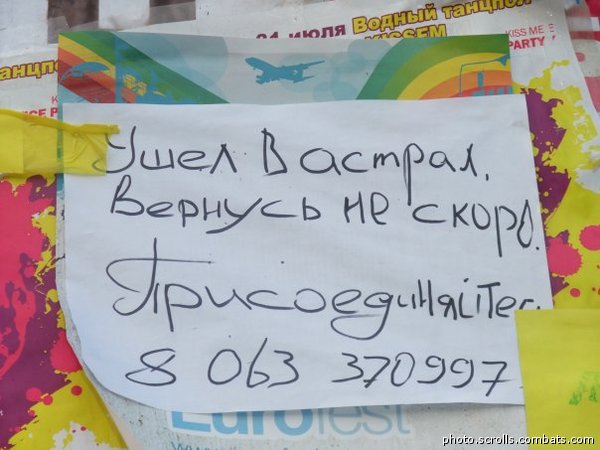 21 июля Водный танцпол
KISSEM
KISS ME
PARTY
танцпо
Ушел в астрал.
Вернусь не скоро.
Присоединяйтес
8 063 370997
EuroTest
photo.scrolls.combats.com